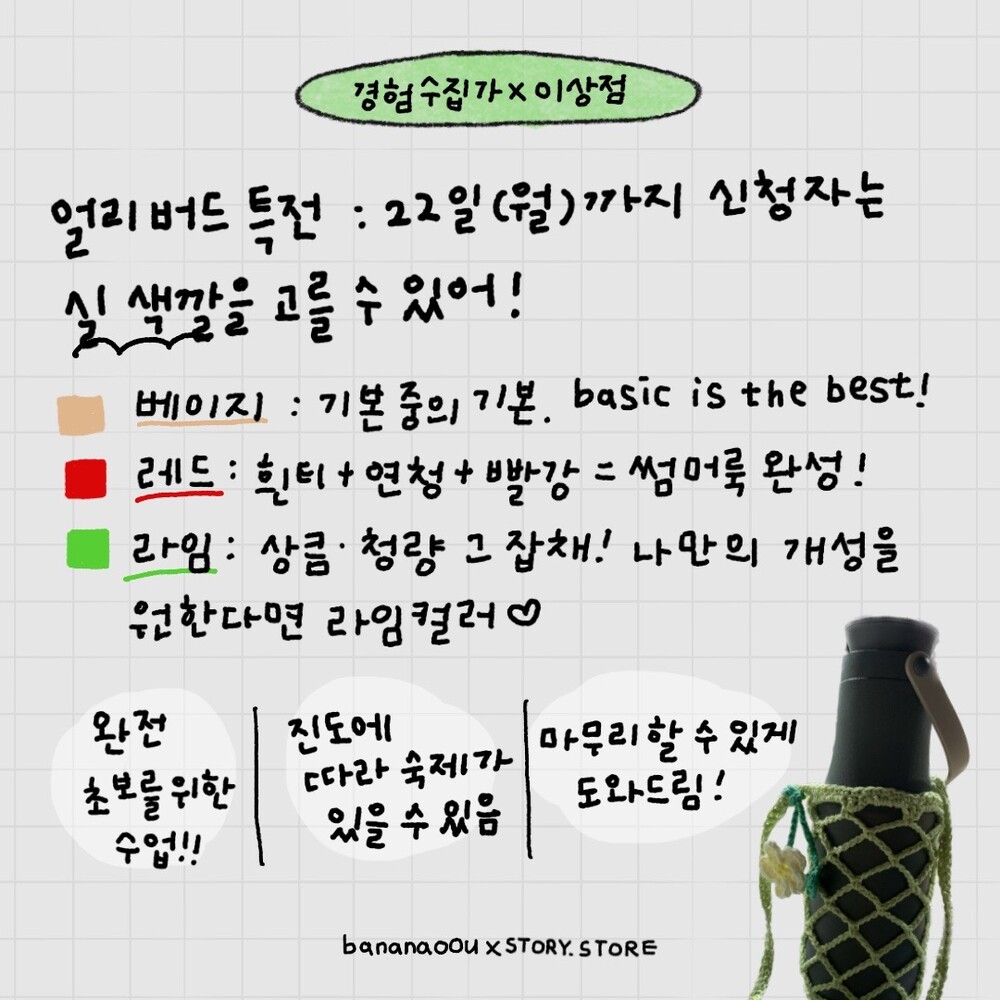 경험수집가 x 이상점
얼리버드 특전 : 22일(월)까지 신청자는
실 색깔을 고를 수 있어!
베이지 : 기본 중의 기본. basic is the best!
레드 : 흰티 + 연청 + 빨강 = 썸머룩 완성!
라임 : 상큼·청량 그 잡채! 나만의 개성을
원한다면 라임컬러♡
완전
초보를 위한
수업!!
진도에
따라 숙제가
있을 수 있음
마무리할 수 있게
도와드림!
bananaoou x STORY.STORE